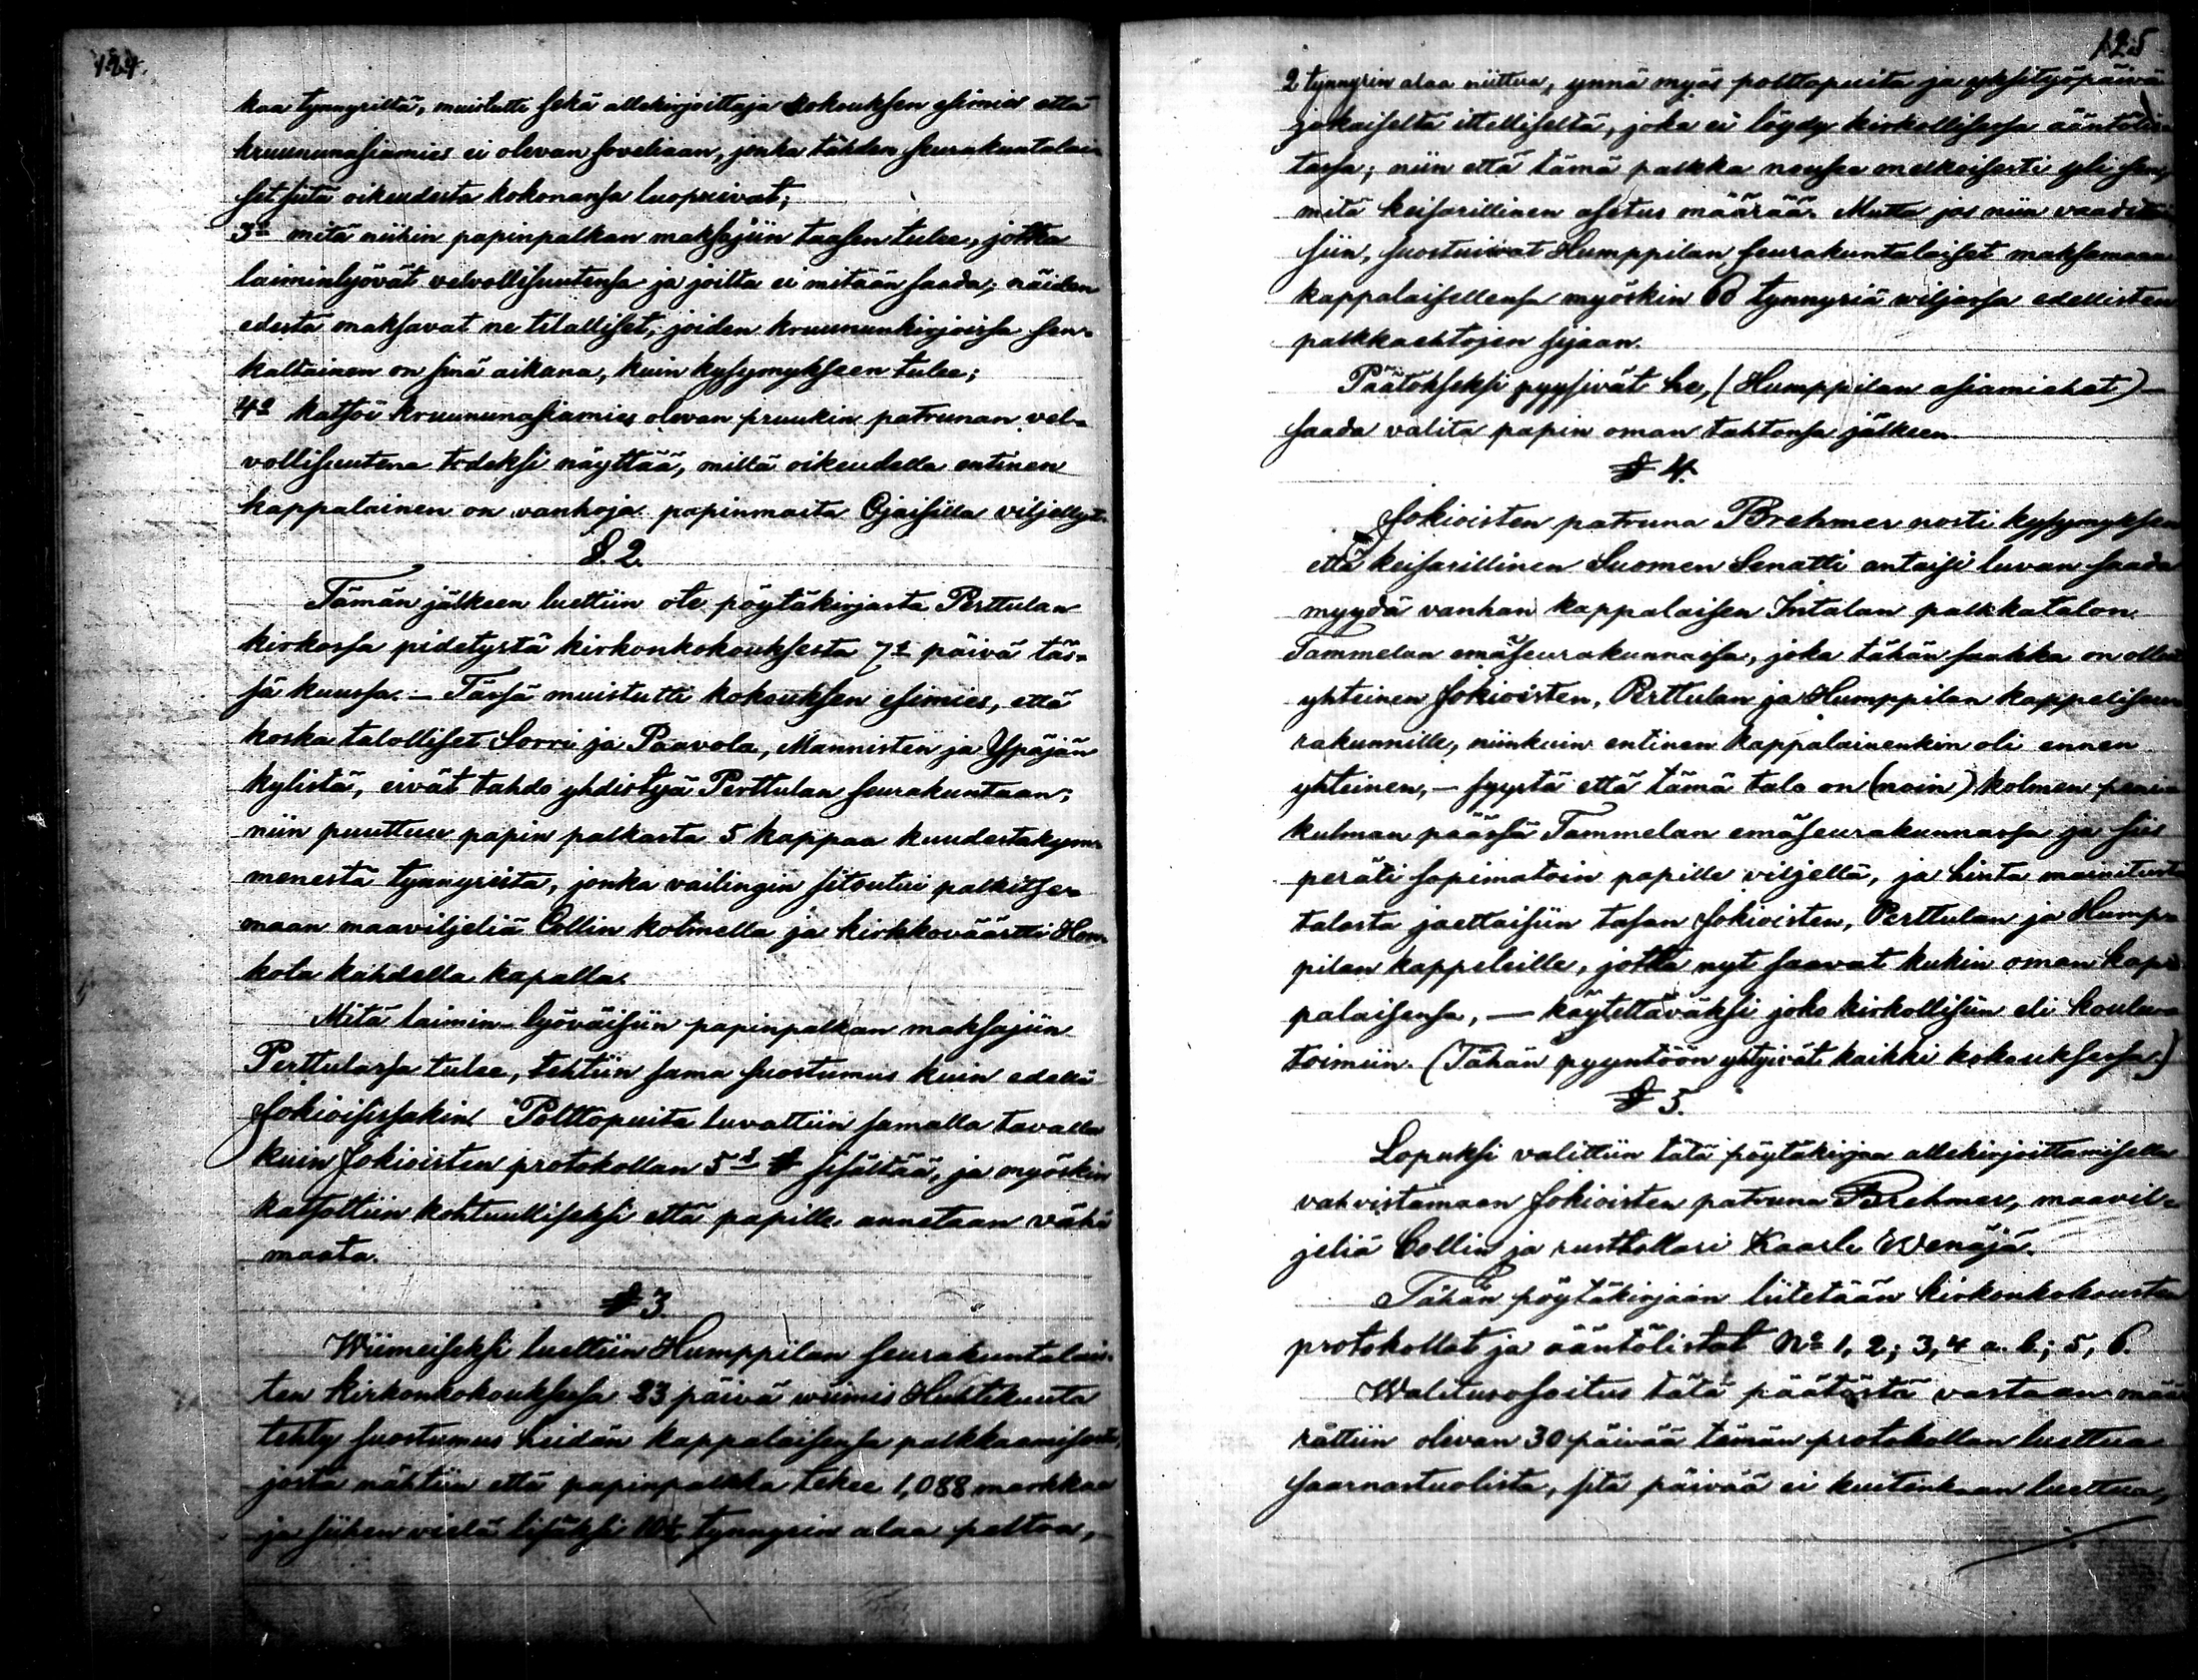 124.
kaa tynnyriltä, muistutti sekä allekirjoittaja kokouksen esimies että
kruununasiamies ei olevan soveliaan, jonka tähden seurakuntalai-
set siitä oikeudesta kokonansa luopuivat;
3o mitä niihin papinpalkan maksajiin taasen tulee, jotka
laiminlyövät velvollisuutensa ja joilta ei mitään saada; näiden
edestä maksavat ne tilalliset, joiden kruununkirjoissa sen-
kaltainen on sinä aikana, kuin kysymykseen tulee;
4o katsoi kruununasiamies olevan pruukin patrunan vel-
vollisuutena todeksi näyttää, millä oikeudella entinen
kappalainen on vanhoja papinmaita Ojaisilla viljellyt.
§. 2.
Tämän jälkeen luettiin ote pöytäkirjasta Perttulan
kirkossa pidetystä kirkonkokouksesta 7s päivä täs-
sä kuussa. — Tässä muistutti kokouksen esimies, että
koska talolliset Sorri ja Paavola, Mannisten ja Ypäjän
kylistä, eivät tahdo yhdistyä Perttulan seurakuntaan;
niin puuttuu papin palkasta 5 kappaa kuudestakym-
menestä tynnyristä, jonka vailingin sitoutui palkitse-
maan maaviljeliä Collin kolmella ja kirkkoväärtti Hon-
kola kahdella kapalla.
Mitä laimin-lyöväisiin papinpalkan maksajiin
Perttulassa tulee, tehtiin sama suostumus kuin edellä
Jokioisissakin. Polttopuita luvattiin samalla tavalla
kuin Jokioisten protokollan 5s § sisältää, ja myöskin
katsottiin kohtuulliseksi että papille annetaan vähä
maata.
§ 3.
Wiimeiseksi luettiin Humppilan seurakuntalais-
ten kirkonkokouksessa 23 päivä wiimis Huhtikuuta
tehty suostumus heidän kappalaisensa palkkaamisesta,
josta nähtiin että papinpalkka tekee 1,088 markkaa
ja siihen vielä lisäksi tynnyrin alaa peltoa,
125
2 tynnyrin alaa niittua, ynnä myös polttopuita ja yksi työpäivä
jokaiselta itelliseltä, joka ei löydy kirkollisessa ääntölis-
tassa; niin että tämä palkka nousee melkoisesti yli sen,
mitä keisarillinen asetus määrää. Mutta jos niin vaadittai-
siin, suostuivat Humppilan seurakuntalaiset maksamaan
kappalaisellensa myöskin tynnyriä wiljassa edellisten
palkkaehtojen sijaan.
Päätökseksi pyysivät he, (Humppilan asiamiehet) —
saada valita papin oman tahtonsa jälkeen.
§ 4.
Jokioisten patruna Brehmer nosti kysymyksen
että keisarillinen Suomen Senatti antaisi luvan saada
myydä vanhan kappalaisen Intalan palkkatalon
Tammelan emäseurakunnassa, joka tähän saakka on ollut
yhteinen Jokioisten, Perttulan ja Humppilan kappeliseu-
rakunnille, niinkuin entinen kappalainenkin oli ennen
yhteinen, — syystä että tämä talo on (noin) kolmen penin-
kulman päässä Tammelan emäseurakunnassa ja siis
peräti sopimatoin papille viljellä, ja hinta mainitusta
talosta jaettaisiin tasan Jokioisten, Perttulan ja Hump-
pilan kappeleille, jotka nyt saavat kukin oman kap-
palaisensa, — käytettäväksi joko kirkollisiin eli koulu-
toimiin. (Tähän pyyntöön yhtyivät kaikki kokouksessa.)
§ 5.
Lopuksi valittiin tätä pöytäkirjaa allekirjoittamisella
vahvistamaan Jokioisten patruna Brehmer, maavil-
jeliä Collin ja rusthollari Kaarle Wenäjä.
Tähän pöytäkirjaan liitetään kirkonkokousten
protokollat ja ääntölistat No 1, 2; 3, 4 a. b; 5, 6.
Walitusosoitus tätä päätöstä vastaan mää-
rättiin olevan 30 päivää tämän protokollan luettua
saarnastuolista, sitä päivää ei kuitenkaan luettua,